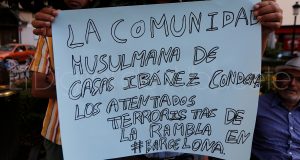 LA COMUNIDAD
MUSULMANA DE
CASAS IBAÑEZ CONDENA
LOS ATENTADOS
TERRORISTAS DE
LA RAMBLA EN
#BARCELONA.